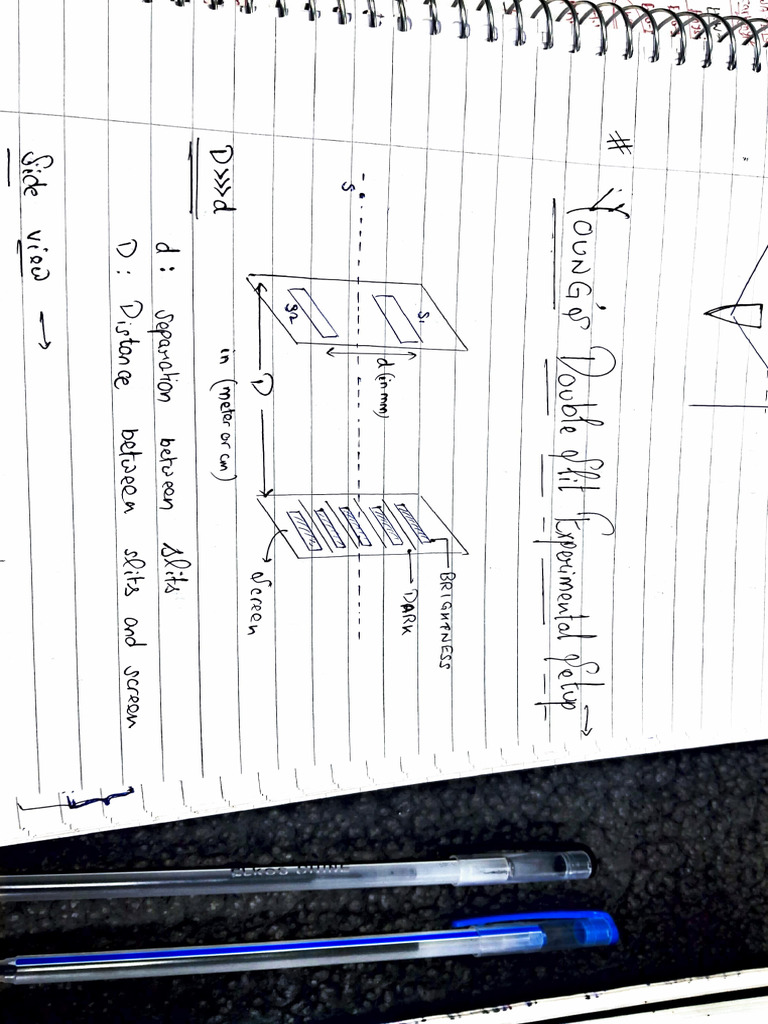 # YOUNG'S Double Slit Experimental Setup →
S1
BRIGHTNESS
d (in mm)
DARK
S
S2
D
Screen
in (meter or cm)
D>>>d
d : separation between slits
D : Distance between slits and screen
Side view →